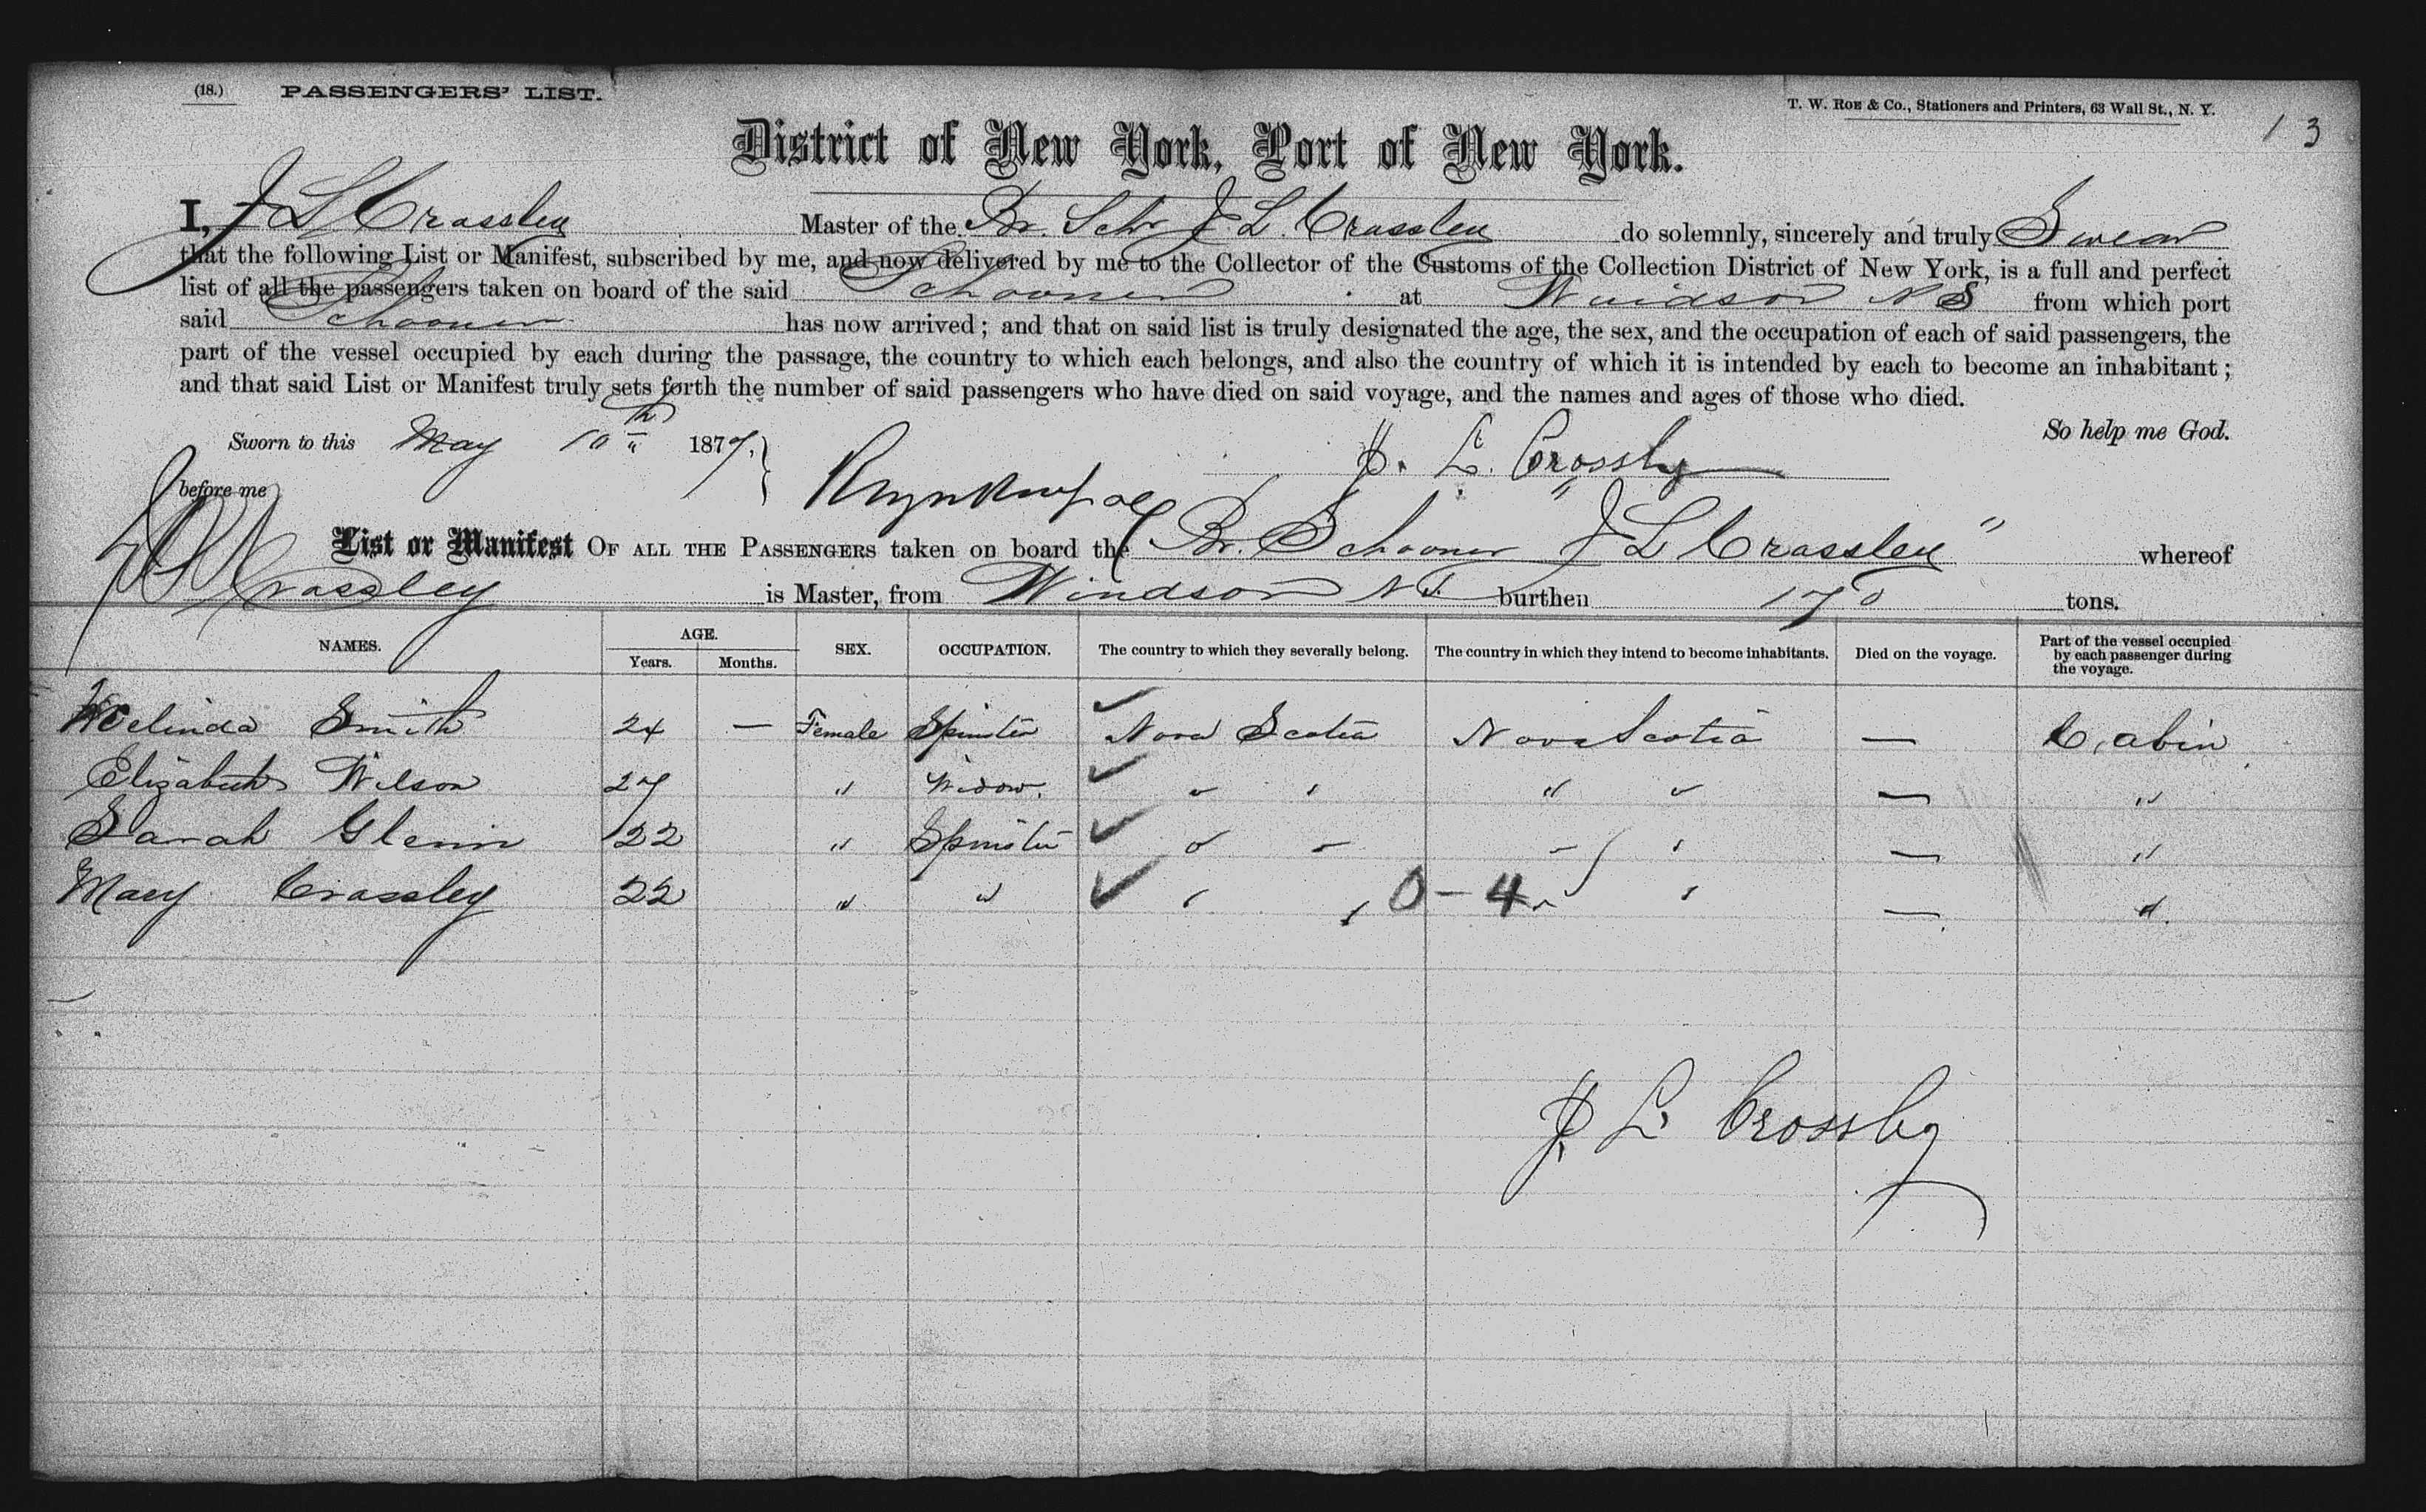 (18.) PASSENGERS' LIST.
T. W. ROE & Co., Stationers and Printers, 63 Wall St., N. Y.
13
District of New York, Port of New York.
I, J L Crassley Master of the Br. Schr J. L. Crassley do solemnly, sincerely and truly Swear
that the following List or Manifest, subscribed by me, and now delivered by me to the Collector of the Customs of the Collection District of New York, is a full and perfect
list of all the passengers taken on board of the said Schooner at Windsor N S from which port
said Schooner has now arrived; and that on said list is truly designated the age, the sex, and the occupation of each of said passengers, the
part of the vessel occupied by each during the passage, the country to which each belongs, and also the country of which it is intended by each to become an inhabitant;
and that said List or Manifest truly sets forth the number of said passengers who have died on said voyage, and the names and ages of those who died.
So help me God.
Sworn to this May 10th 1877.
J. L. Crossley
before me
List or Manifest OF ALL THE PASSENGERS taken on board the Br. Schooner "J L Crassley" whereof
Crassley is Master, from Windsor N S. burthen 170 tons.
NAMES. AGE. Years. Months. SEX. OCCUPATION. The country to which they severally belong. The country in which they intend to become inhabitants. Died on the voyage. Part of the vessel occupied by each passenger during the voyage.
Smith 24 — Female Spinster ✓ Nova Scotia Nova Scotia — Cabin
Elizabeth Wilson 27 " Widow. ✓ " " " " — "
Sarah Glenn 22 " Spinster ✓ " " " " — "
Mary Crassley 22 " " ✓ " " 0-4 " " — "
J. L. Crossley